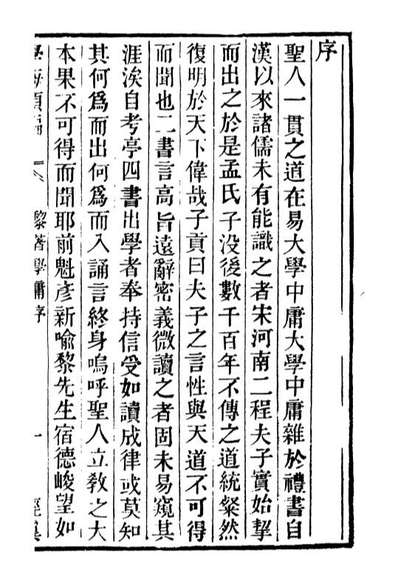 序
聖人一貫之道在易大學中庸大學中庸雜於禮書自
漢以來諸儒未有能識之者宋河南二程夫子實始挈
而出之於是孟氏子没後數千百年不傳之道統粲然
復明於天下偉哉子貢曰夫子之言性與天道不可得
而聞也二書言高旨遠辭密義微讀之者固未易窺其
涯涘自考亭四書出學者奉持信受如讀成律或莫知
其何爲而出何爲而入誦言終身嗚呼聖人立教之大
本果不可得而聞耶前魁彥新喻黎先生宿德峻望如
黎著學庸序
一